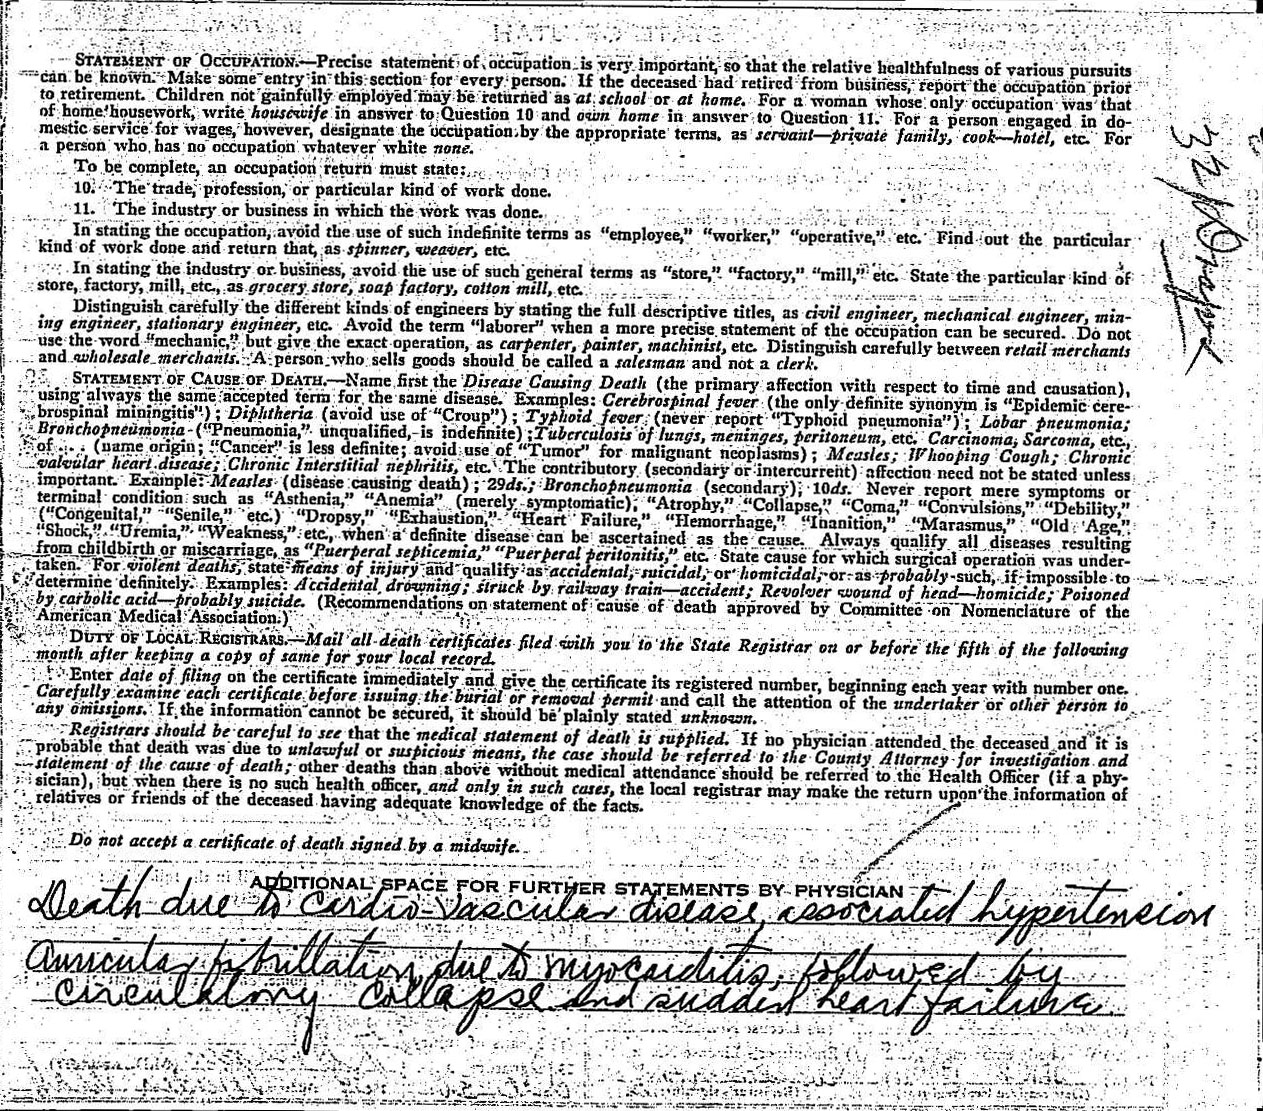 STATEMENT OF OCCUPATION.—Precise statement of occupation is very important, so that the relative healthfulness of various pursuits
can be known. Make some entry in this section for every person. If the deceased had retired from business, report the occupation prior
to retirement. Children not gainfully employed may be returned as at school or at home. For a woman whose only occupation was that
of home housework, write housewife in answer to Question 10 and own home in answer to Question 11. For a person engaged in do-
mestic service for wages, however, designate the occupation by the appropriate terms, as servant—private family, cook—hotel, etc. For
a person who has no occupation whatever white none.
To be complete, an occupation return must state:
10. The trade, profession, or particular kind of work done.
11. The industry or business in which the work was done.
In stating the occupation, avoid the use of such indefinite terms as “employee,” “worker,” “operative,” etc. Find out the particular
kind of work done and return that, as spinner, weaver, etc.
In stating the industry or business, avoid the use of such general terms as “store,” “factory,” “mill,” etc. State the particular kind of
store, factory, mill, etc., as grocery store, soap factory, cotton mill, etc.
Distinguish carefully the different kinds of engineers by stating the full descriptive titles, as civil engineer, mechanical engineer, min-
ing engineer, stationary engineer, etc. Avoid the term “laborer” when a more precise statement of the occupation can be secured. Do not
use the word “mechanic,” but give the exact operation, as carpenter, painter, machinist, etc. Distinguish carefully between retail merchants
and wholesale merchants. A person who sells goods should be called a salesman and not a clerk.
STATEMENT OF CAUSE OF DEATH.—Name first the Disease Causing Death (the primary affection with respect to time and causation),
using always the same accepted term for the same disease. Examples: Cerebrospinal fever (the only definite synonym is “Epidemic cere-
brospinal miningitis”); Diphtheria (avoid use of “Croup”); Typhoid fever (never report “Typhoid pneumonia”); Lobar pneumonia;
Bronchopneumonia (“Pneumonia,” unqualified, is indefinite); Tuberculosis of lungs, meninges, peritoneum, etc. Carcinoma, Sarcoma, etc.,
of . . . (name origin; “Cancer” is less definite; avoid use of “Tumor” for malignant neoplasms); Measles; Whooping Cough; Chronic
valvular heart disease; Chronic Interstitial nephritis, etc. The contributory (secondary or intercurrent) affection need not be stated unless
important. Example: Measles (disease causing death); 29ds.; Bronchopneumonia (secondary), 10ds. Never report mere symptoms or
terminal condition such as “Asthenia,” “Anemia” (merely symptomatic), “Atrophy,” “Collapse,” “Coma,” “Convulsions,” “Debility,”
(“Congenital,” “Senile,” etc.) “Dropsy,” “Exhaustion,” “Heart Failure,” “Hemorrhage,” “Inanition,” “Marasmus,” “Old Age,”
“Shock,” “Uremia,” “Weakness,” etc., when a definite disease can be ascertained as the cause. Always qualify all diseases resulting
from childbirth or miscarriage, as “Puerperal septicemia,” “Puerperal peritonitis,” etc. State cause for which surgical operation was under-
taken. For violent deaths, state means of injury and qualify as accidental, suicidal, or homicidal, or as probably such, if impossible to
determine definitely. Examples: Accidental drowning; struck by railway train—accident; Revolver wound of head—homicide; Poisoned
by carbolic acid—probably suicide. (Recommendations on statement of cause of death approved by Committee on Nomenclature of the
American Medical Association.)
DUTY OF LOCAL REGISTRARS.—Mail all death certificates filed with you to the State Registrar on or before the fifth of the following
month after keeping a copy of same for your local record.
Enter date of filing on the certificate immediately and give the certificate its registered number, beginning each year with number one.
Carefully examine each certificate before issuing the burial or removal permit and call the attention of the undertaker or other person to
any omissions. If the information cannot be secured, it should be plainly stated unknown.
Registrars should be careful to see that the medical statement of death is supplied. If no physician attended the deceased and it is
probable that death was due to unlawful or suspicious means, the case should be referred to the County Attorney for investigation and
statement of the cause of death; other deaths than above without medical attendance should be referred to the Health Officer (if a phy-
sician), but when there is no such health officer, and only in such cases, the local registrar may make the return upon the information of
relatives or friends of the deceased having adequate knowledge of the facts.
Do not accept a certificate of death signed by a midwife.
ADDITIONAL SPACE FOR FURTHER STATEMENTS BY PHYSICIAN
Death due to Cardio-Vascular disease, associated hypertension
Auricular fibrillation due to myocarditis, followed by
circulatory collapse and sudden heart failure